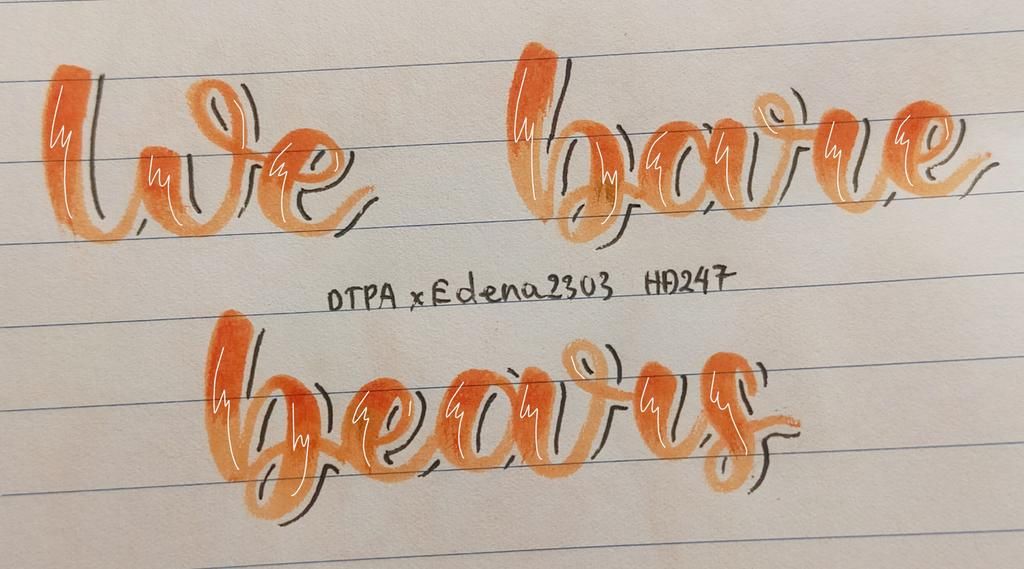 We bare
DTPA x Edena2303 HD247
bears